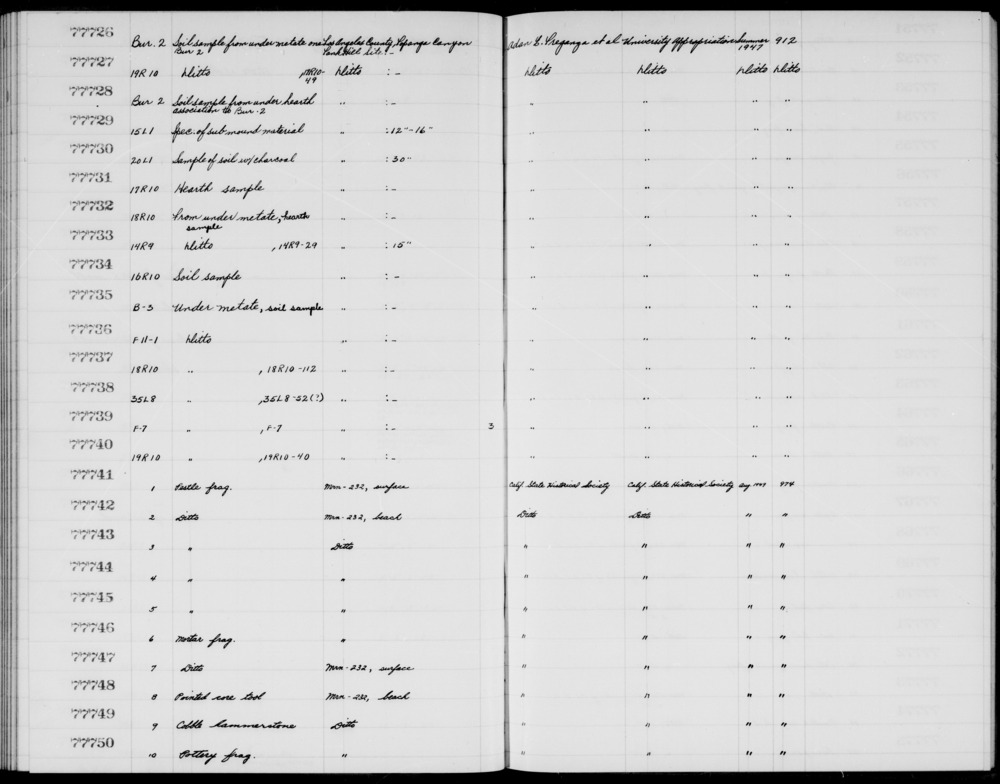 77726
Bur. 2 Soil sample from under metate one Los Angeles County, Topanga Canyon Adan E. Treganza et al University Appropriations Summer 912
Bur 2 Tank Hill Site : - 1947
77727
19R10 Ditto , 19R10- Ditto : - Ditto Ditto Ditto Ditto
49
77728
Bur 2 Soil sample from under hearth " : - " " " "
association to Bur. 2
77729
15L1 Spec. of sub mound material " : 12"-16" " " " "
77730
20L1 Sample of soil w/charcoal " : 30" " " " "
77731
17R10 Hearth sample " : - " " " "
77732
18R10 From under metate, hearth " : - " " " "
sample
77733
14R9 Ditto , 14R9-29 " : 15" " " " "
77734
16R10 Soil sample " : - " " " "
77735
B-3 Under metate, soil sample " : - " " " "
77736
F 11-1 Ditto " : - " " " "
77737
18R10 " , 18R10-112 " : - " " " "
77738
35L8 " , 35L8-52(?) " : - " " " "
77739
F-7 " , F-7 " : - 3 " " " "
77740
19R10 " , 19R10-40 " : - " " " "
77741
1 Pestle frag. Mrn-232, surface Calif. State Historical Society Calif. State Historical Society 974
77742
2 Ditto Mrn-232, beach Ditto Ditto " "
77743
3 " Ditto " " " "
77744
4 " " " " " "
77745
5 " " " " " "
77746
6 Mortar frag. " " " " "
77747
7 Ditto Mrn-232, surface " " " "
77748
8 Pointed core tool Mrn-232, beach " " " "
77749
9 Cobble hammerstone Ditto " " " "
77750
10 Pottery frag. " " " " "